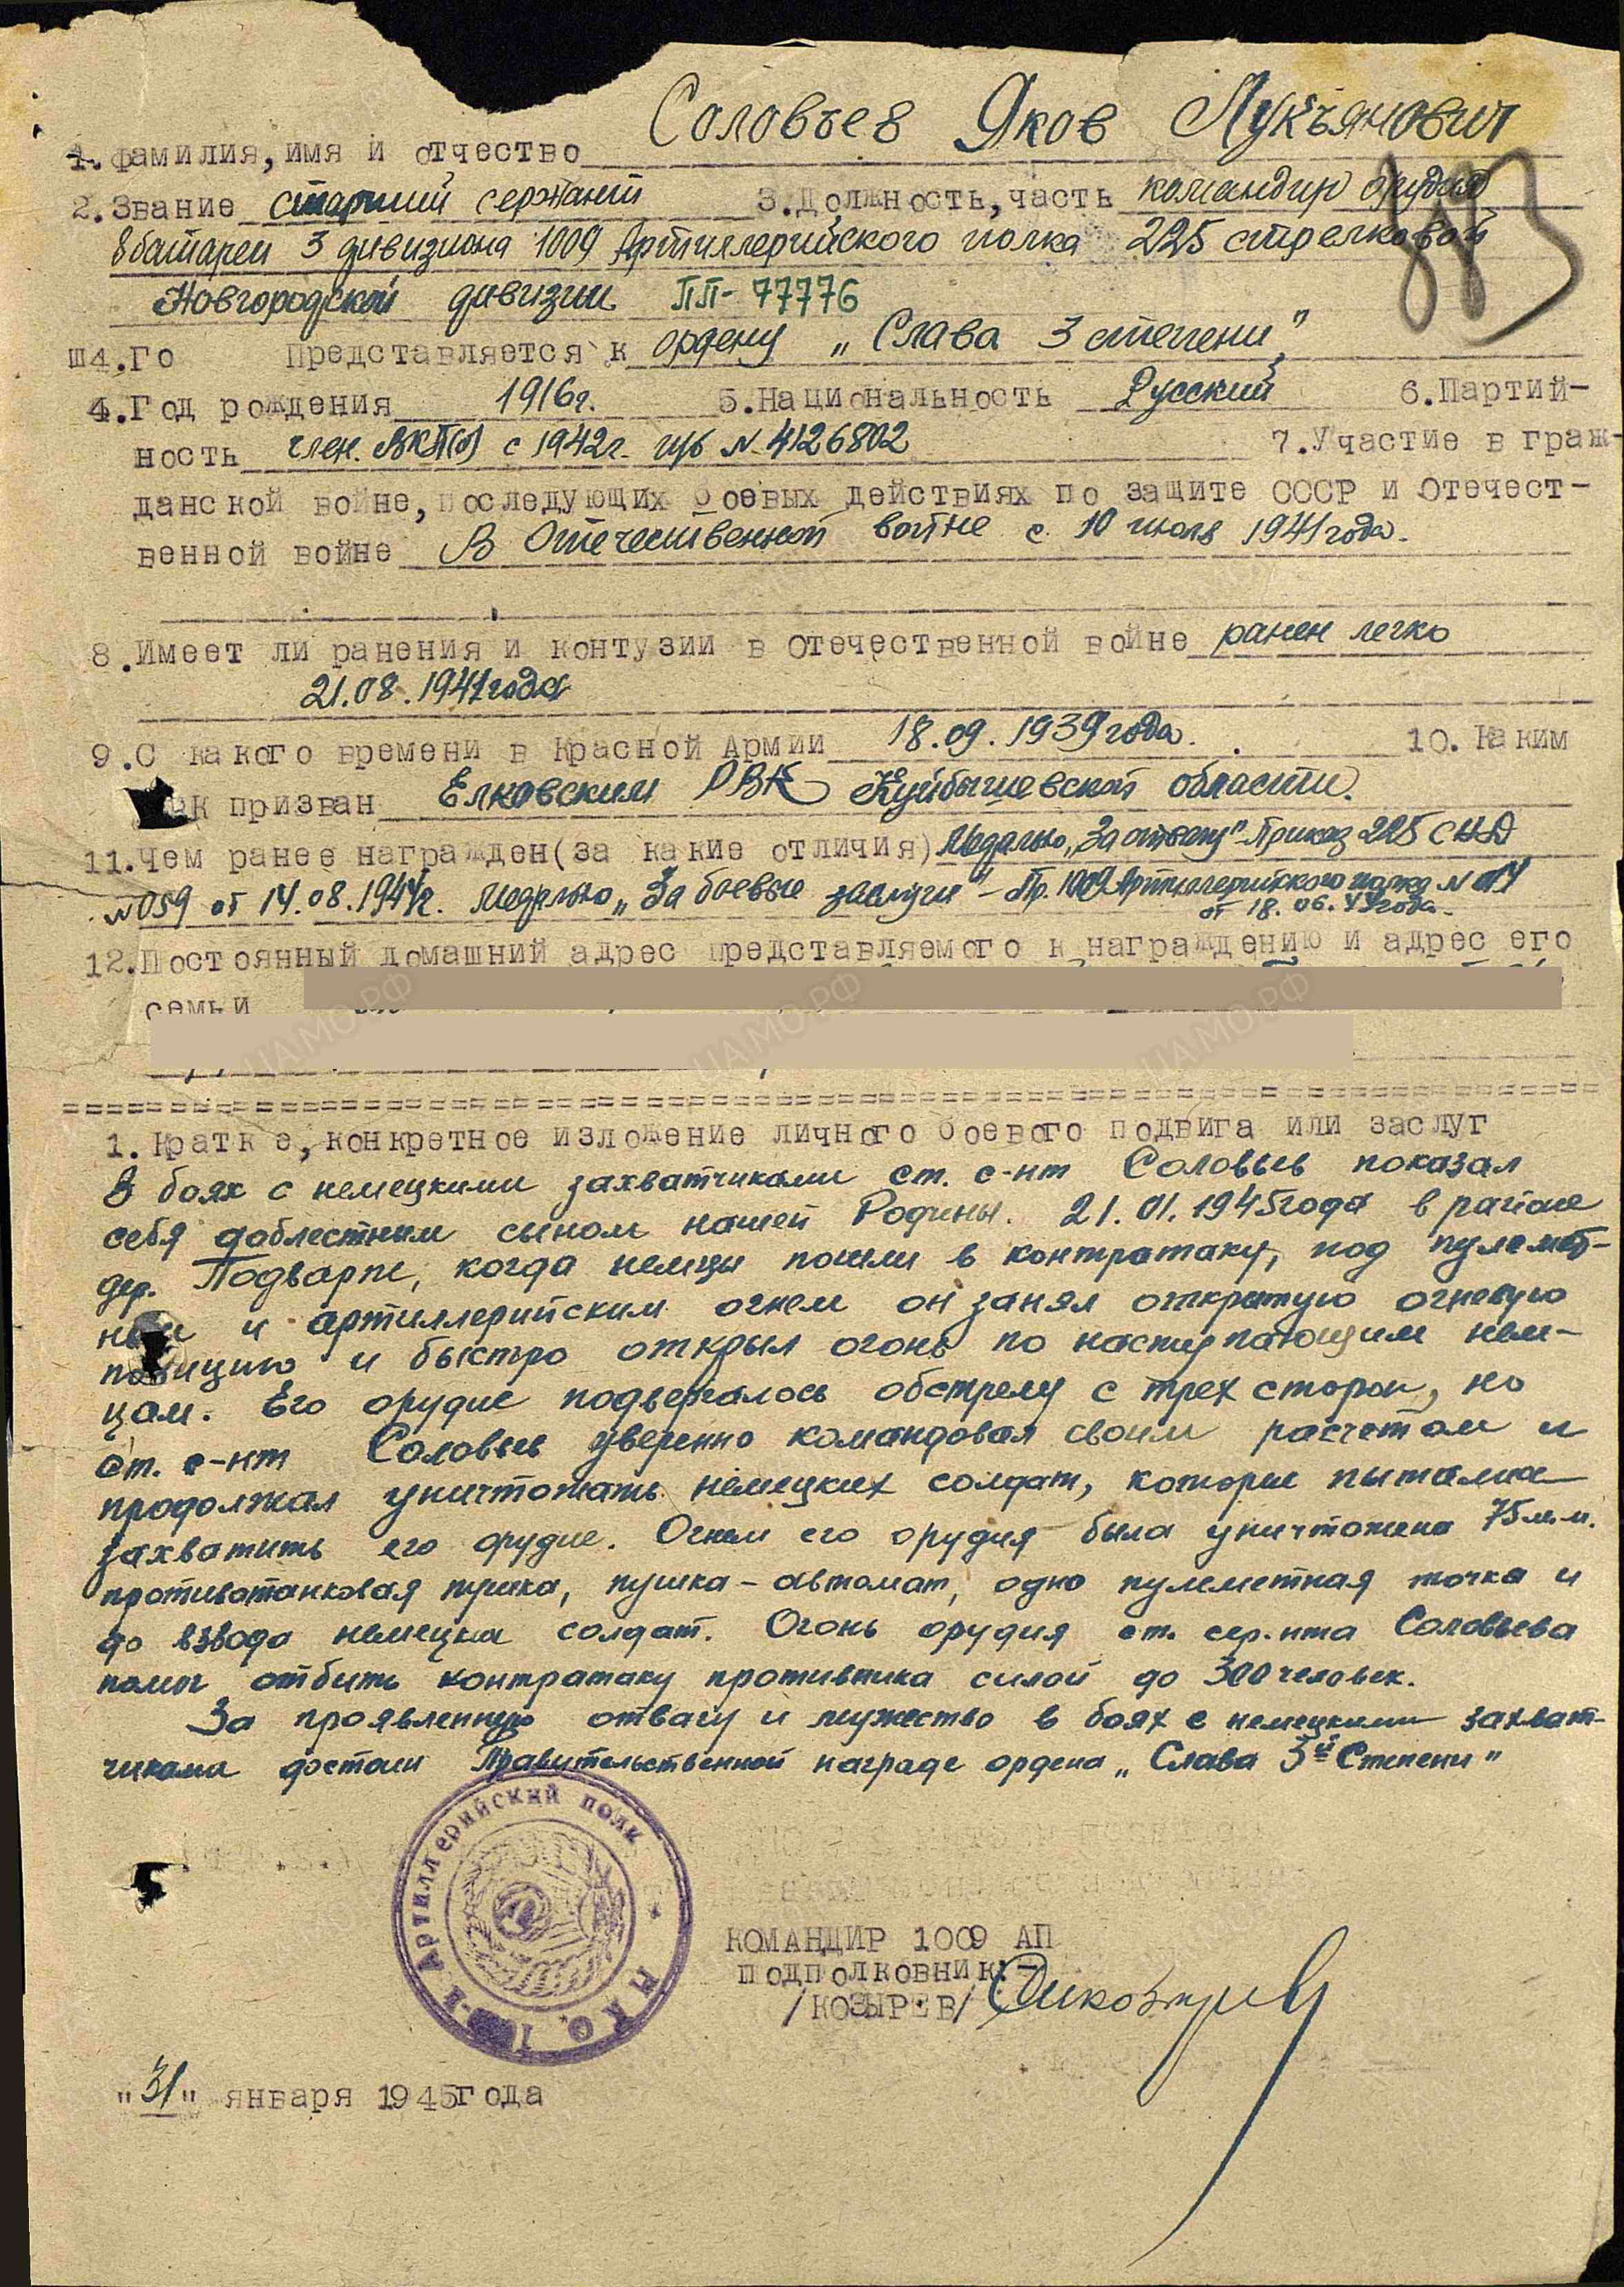 Соловьев Яков Лукьянович
1. Фамилия, имя и отчество
2. Звание старший сержант 3. Должность, часть командир орудия
8 батареи 3 дивизиона 1009 Артиллерийского полка 225 стрелковой
Новгородской дивизии ПП-77776
Ш4.Го Представляется к ордену „Слава 3 степени"
4. Год рождения 1916г. 5. Национальность Русский 6. Партий-
ность член. ВКП(б) с 1942г. п/б N 4126802 7. Участие в граж-
данской войне, последующих боевых действиях по защите СССР и Отечест-
венной войне В Отечественной войне с 10 июля 1941 года.
8. Имеет ли ранения и контузии в отечественной войне ранен легко
21.08.1941 года
9. С какого времени в Красной Армии 18.09.1939 года. 10. Каким
РВК призван Елховским РВК Куйбышевской области.
11. Чем ранее награжден (за какие отличия) Медалью „За отвагу" Приказ 225 СНД
N 059 от 14.08.1944г. Медалью „За боевые заслуги" – Пр. 1009 Артиллерийского полка N 014
от 18.06.44 года.
12. Постоянный домашний адрес представляемого к награждению и адрес его
семьи
1. Кратк е, конкретное изложение личного боевого подвига или заслуг
В боях с немецкими захватчиками ст. с-нт Соловьев показал
себя доблестным сыном нашей Родины. 21.01.1945 года в районе
дер. Подварпе, когда немцы пошли в контратаку, под пулемет-
ным и артиллерийским огнем он занял открытую огневую
позицию и быстро открыл огонь по наступающим нем-
цам. Его орудие подвергалось обстрелу с трех сторон, но
ст. с-нт Соловьев уверенно командовал своим расчетом и
продолжал уничтожать немецких солдат, которые пытались
захватить его орудие. Огнем его орудия была уничтожена 75 м.м.
противотанковая пушка, пушка-автомат, одна пулеметная точка и
до взвода немецких солдат. Огонь орудия ст. сер.нта Соловьева
помог отбить контратаку противника силой до 300 человек.
За проявленную отвагу и мужество в боях с немецкими захват-
чиками достоин Правительственной награде ордена „Слава 3й Степени"
Артиллерийский полк
НКО
КОМАНДИР 1009 АП
ПОДПОЛКОВНИК: –
/КОЗЫРЕВ/
"31" января 1945 года
ЦАМО.РФ ЦАМО.РФ ЦАМО.РФ